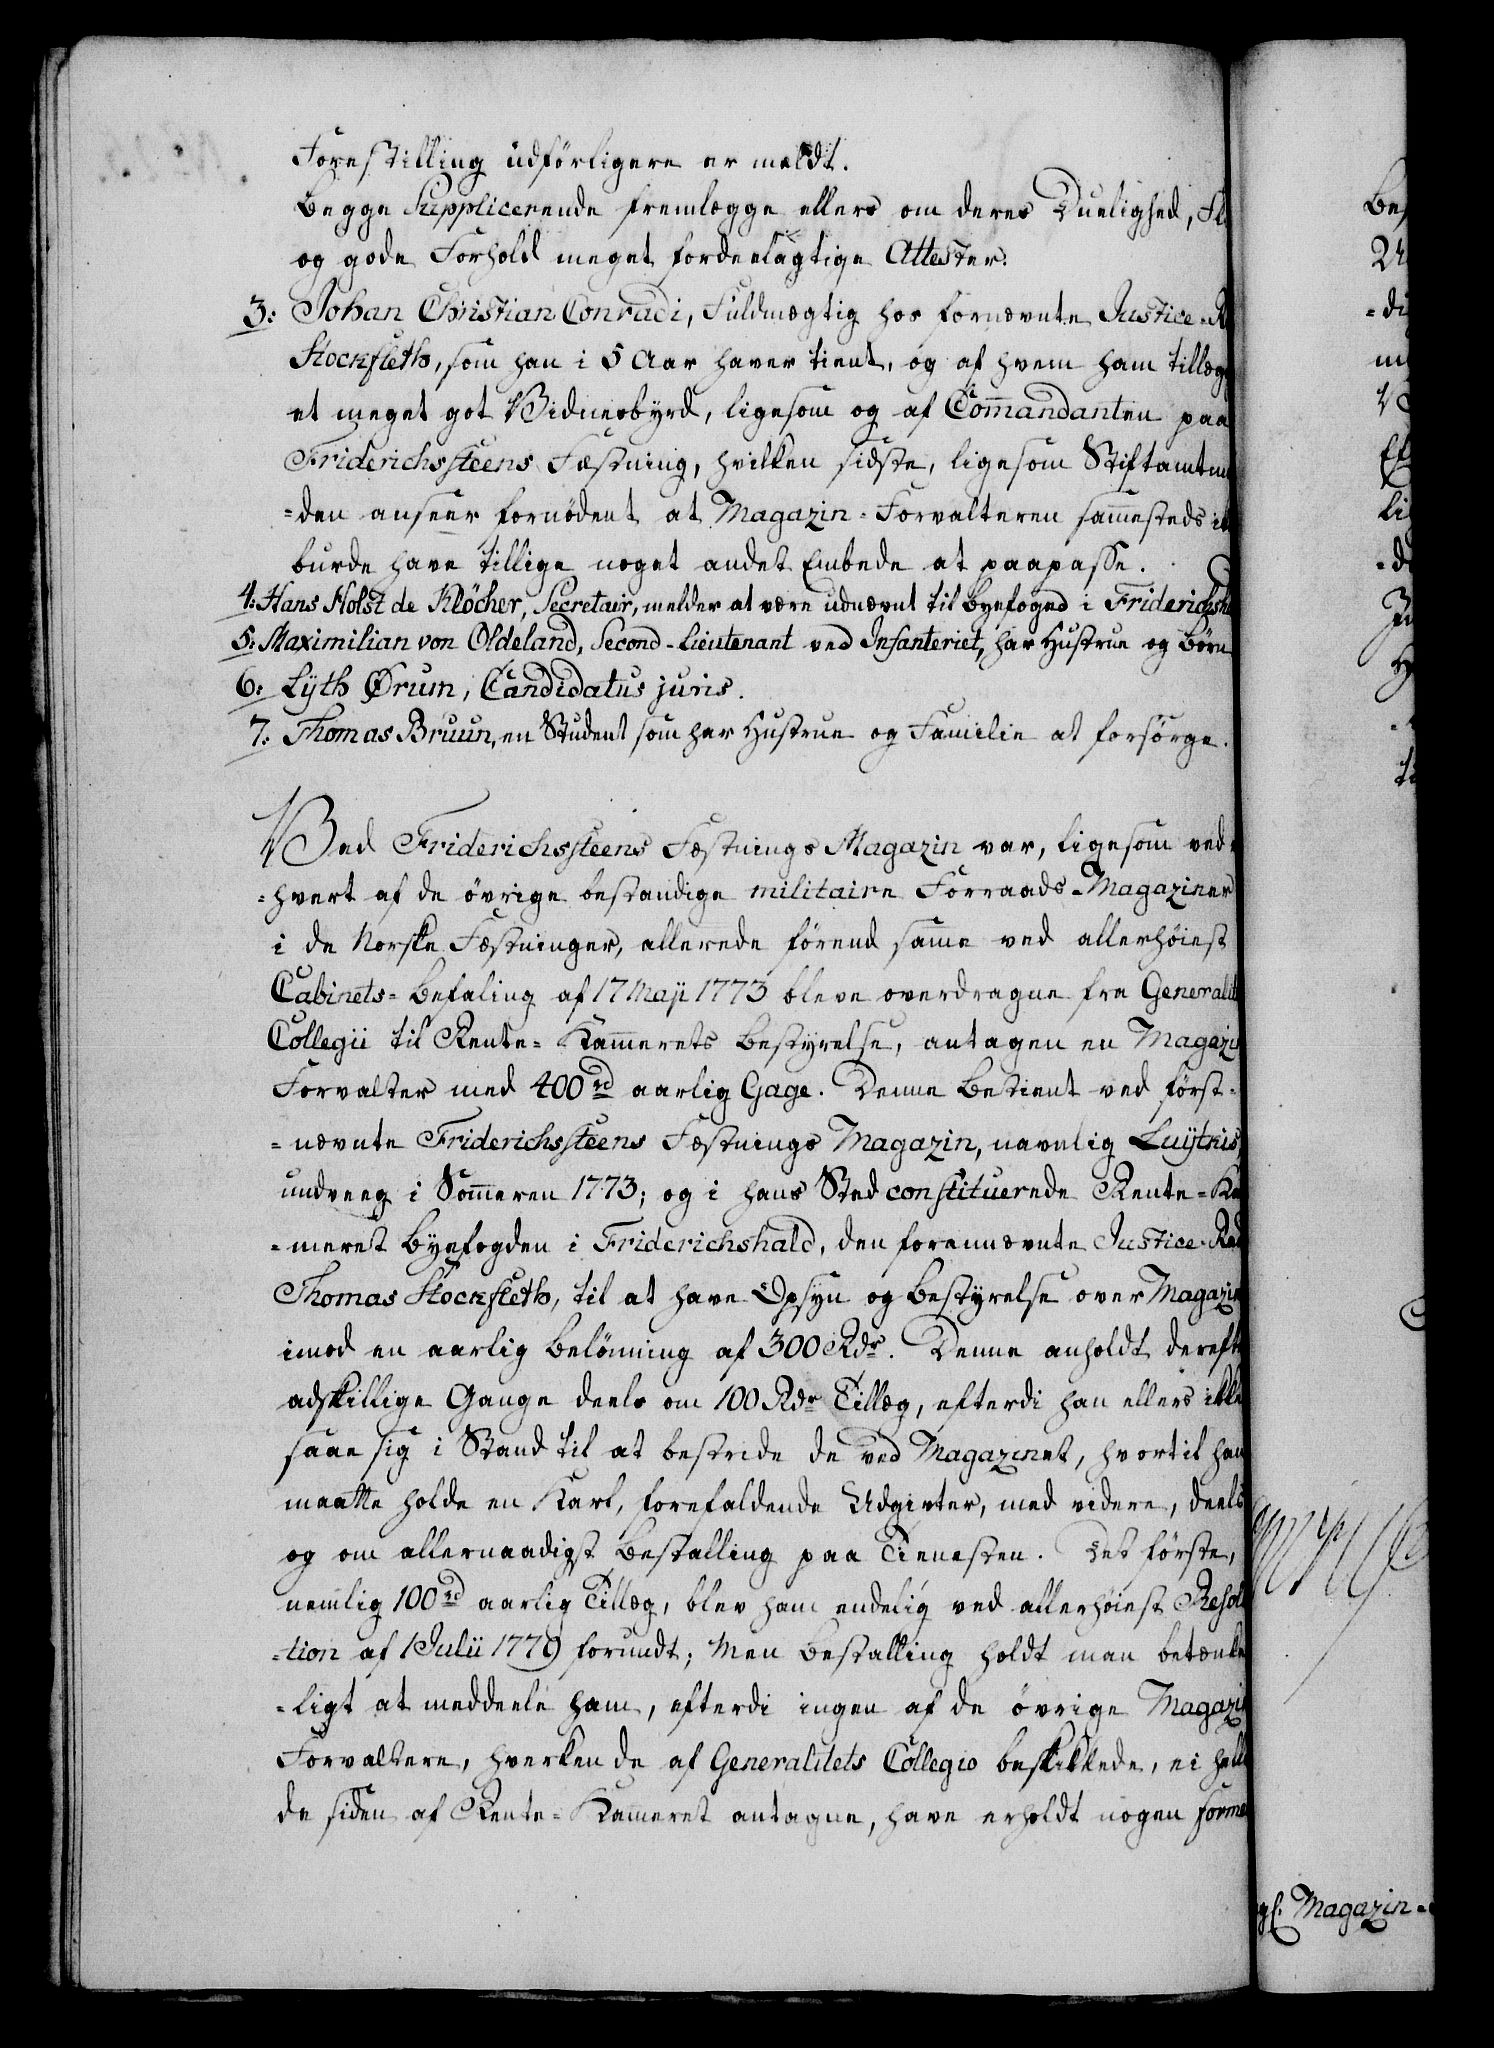 Forestilling udförligere er meldt.
Begge Supplicerende fremlægge ellers om deres Duelighed,
og gode Forhold meget fordeelagtige Attester.
3: Johan Christian Conradi, Fuldmægtig hos fornævnte Justice-R
Stockfleth, som han i 5 Aar haver tient, og af hvem ham tillæg
et meget got Vidnesbyrd, ligesom og af Com̄andanten paa
Friderichssteens Fæstning, hvilken sidste, ligesom Stiftamtm
=den anseer fornödent at Magazin-Forvalteren sam̄esteds
burde have tillige noget andet Embede at paapasse.
4: Hans Holst de Klöcher, Secretair, melder at være udnævnt til Byefoged i Friderichsh
5: Maximilian von Oldeland, Second-Lieutenant ved Infanteriet, har Hustrue og Börn
6: Lyth Ørum, Candidatus juris.
7: Thomas Bruun, en Student som har Hustrue og Familie at forsörge.
Ved Friderichssteens Fæstnings Magazin var, ligesom ved
=hvert af de övrige bestandige militaire Forraads-Magaziner
i de Norske Fæstninger, allerede förend sam̄e ved allerhöiest
Cabinets-Befaling af 17 Maji 1773 bleve overdragne fra Generalit
Collegii til Rente-Kam̄erets Bestyrelse, antagen en Magazi
Forvalter med 400 rd aarlig Gage. Denne Betient ved först=
=nævnte Friderichssteens Fæstnings Magazin, navnlig Luytkis,
undveeg i Som̄eren 1773; og i hans Sted constituerede Rente-Ka
=meret Byefogden i Friderichshald, den forennævnte Justice-Raad
Thomas Stockfleth, til at have Opsyn og Bestyrelse over Magazin
imod en aarlig Belönning af 300 Rdr. Denne anholdt dereft
adskillige Gange deels om 100 Rdr Tillæg, efterdi han ellers ikke
saae sig i Stand til at bestride de ved Magazinet, hvortil han
maatte holde en Karl, forefaldende Udgivter, med videre, deels
og om allernaadigst Bestalling paa Tienesten. Det förste,
nemlig 100 rd aarlig Tillæg, blev ham endelig ved allerhöiest Resolu
=tion af 1 Julii 1779 forundt; Men Bestalling holdt man betænke
=ligt at meddeele ham, efterdi ingen af de övrige Magazin
Forvaltere, hverken de af Generalitets Collegio beskikkede, ei hell
de siden af Rente-Kam̄eret antagne, have erholdt nogen forme
Magazin-